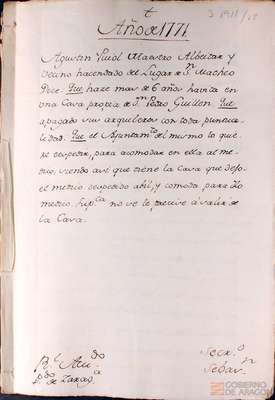 t
Año de 1771.
J 1911/12
Agustin Puiol Maestro Albeitar y
Vecino hacendado del Lugar de Sn. Matheo
Dize: Que haze mas de 6 años havita en
una Casa propria de Dn. Pedro Guillen. Que
apagado sus arquileres con toda puntua-
lidad. Que el Ayuntamto. del mismo lo quie-
re despedir, para acomodar en ella al me-
dico, viendo asi que tiene la Casa que dejo
el medico despedido abil, y comoda para
medico. Supca. no se le precise à salir de
la Casa.
Rl. Acudo
de Zaraga
Secro.
Sebasn.
GOBIERNO
DE ARAGON